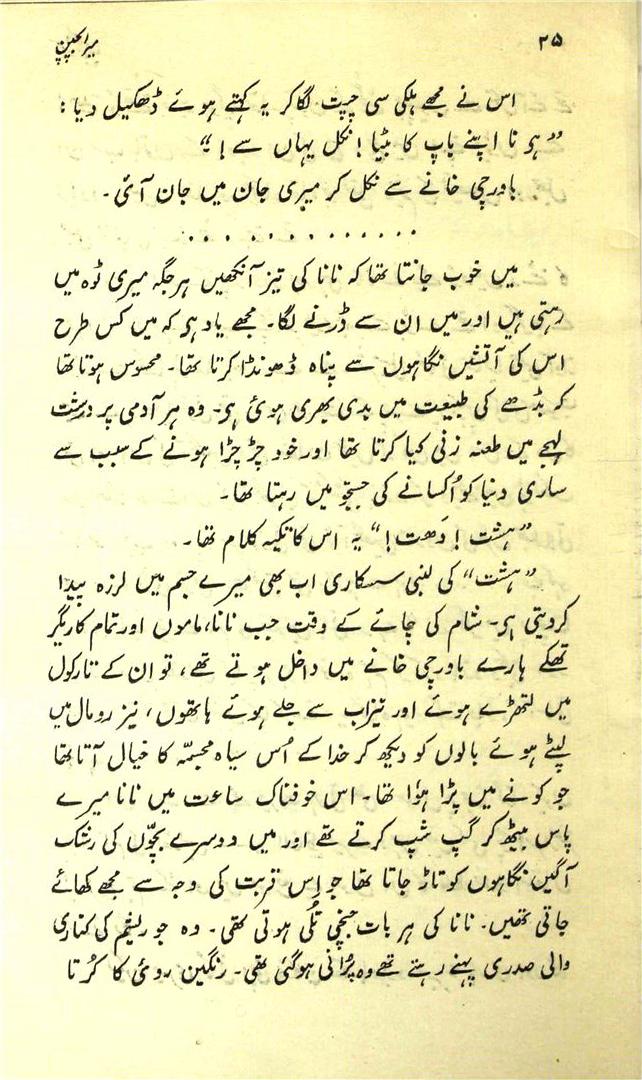 ۲۵ میرا بچپن
اس نے مجھے ہلکی سی چپت لگا کر یہ کہتے ہوئے ڈھکیل دیا :
”ہو نا اپنے باپ کا بیٹا! نکل یہاں سے!“
باورچی خانے سے نکل کر میری جان میں جان آئی۔
. . . . . . . . . . . . .
میں خوب جانتا تھا کہ نانا کی تیز آنکھیں ہر جگہ میری ٹوہ میں
رہتی ہیں اور میں ان سے ڈرنے لگا۔ مجھے یاد ہی کہ میں کس طرح
اس کی آتشیں نگاہوں سے پناہ ڈھونڈا کرتا تھا۔ محسوس ہوتا تھا
کہ بڈھے کی طبیعت میں بدی بھری ہوئی ہی۔ وہ ہر آدمی پر درشت
لہجے میں طعنہ زنی کیا کرتا تھا اور خود چڑ چڑا ہونے کے سبب سے
ساری دنیا کو اُکسانے کی جستجو میں رہتا تھا۔
”ہشت! دَھت!“ یہ اس کا تکیہ کلام تھا۔
”ہشت“ کی لنبی سسکاری اب بھی میرے جسم میں لرزہ پیدا
کر دیتی ہی۔ شام کی چائے کے وقت جب نانا، ماموں اور تمام کاریگر
تھکے ہارے باورچی خانے میں داخل ہوتے تھے، تو ان کے تارکول
میں لتھڑے ہوئے اور تیزاب سے جلے ہوئے ہاتھوں، نیز رومال میں
لپٹے ہوئے بالوں کو دیکھ کر خدا کے اُس سیاہ مجسمّہ کا خیال آتا تھا
جو کونے میں پڑا ہؤا تھا۔ اس خوفناک ساعت میں نانا میرے
پاس بیٹھ کر گپ شپ کرتے تھے اور میں دوسرے بچّوں کی رشک
آگیں نگاہوں کو تاڑ جاتا تھا جو اِس قربت کی وجہ سے مجھے کھائے
جاتی تھیں۔ نانا کی ہر بات جنچی تُلی ہوتی تھی۔ وہ جو ریشم کی کناری
والی صدری پہنے رہتے تھے وہ پُرانی ہو گئی تھی۔ رنگین روئی کا کُرتا